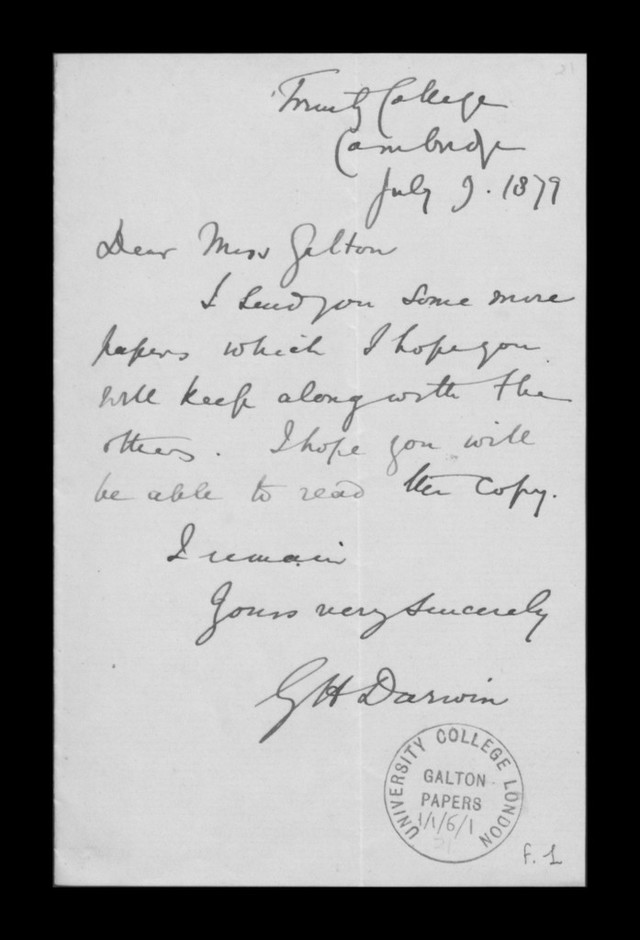 Trinity College
Cambridge
July 9. 1879
Dear Miss Galton
I send you some more
papers which I hope you
will keep along with the
others. I hope you will
be able to read the copy.
I remain
Yours very sincerely
G H Darwin
UNIVERSITY COLLEGE LONDON
GALTON
PAPERS
1/1/6/1
f. 1